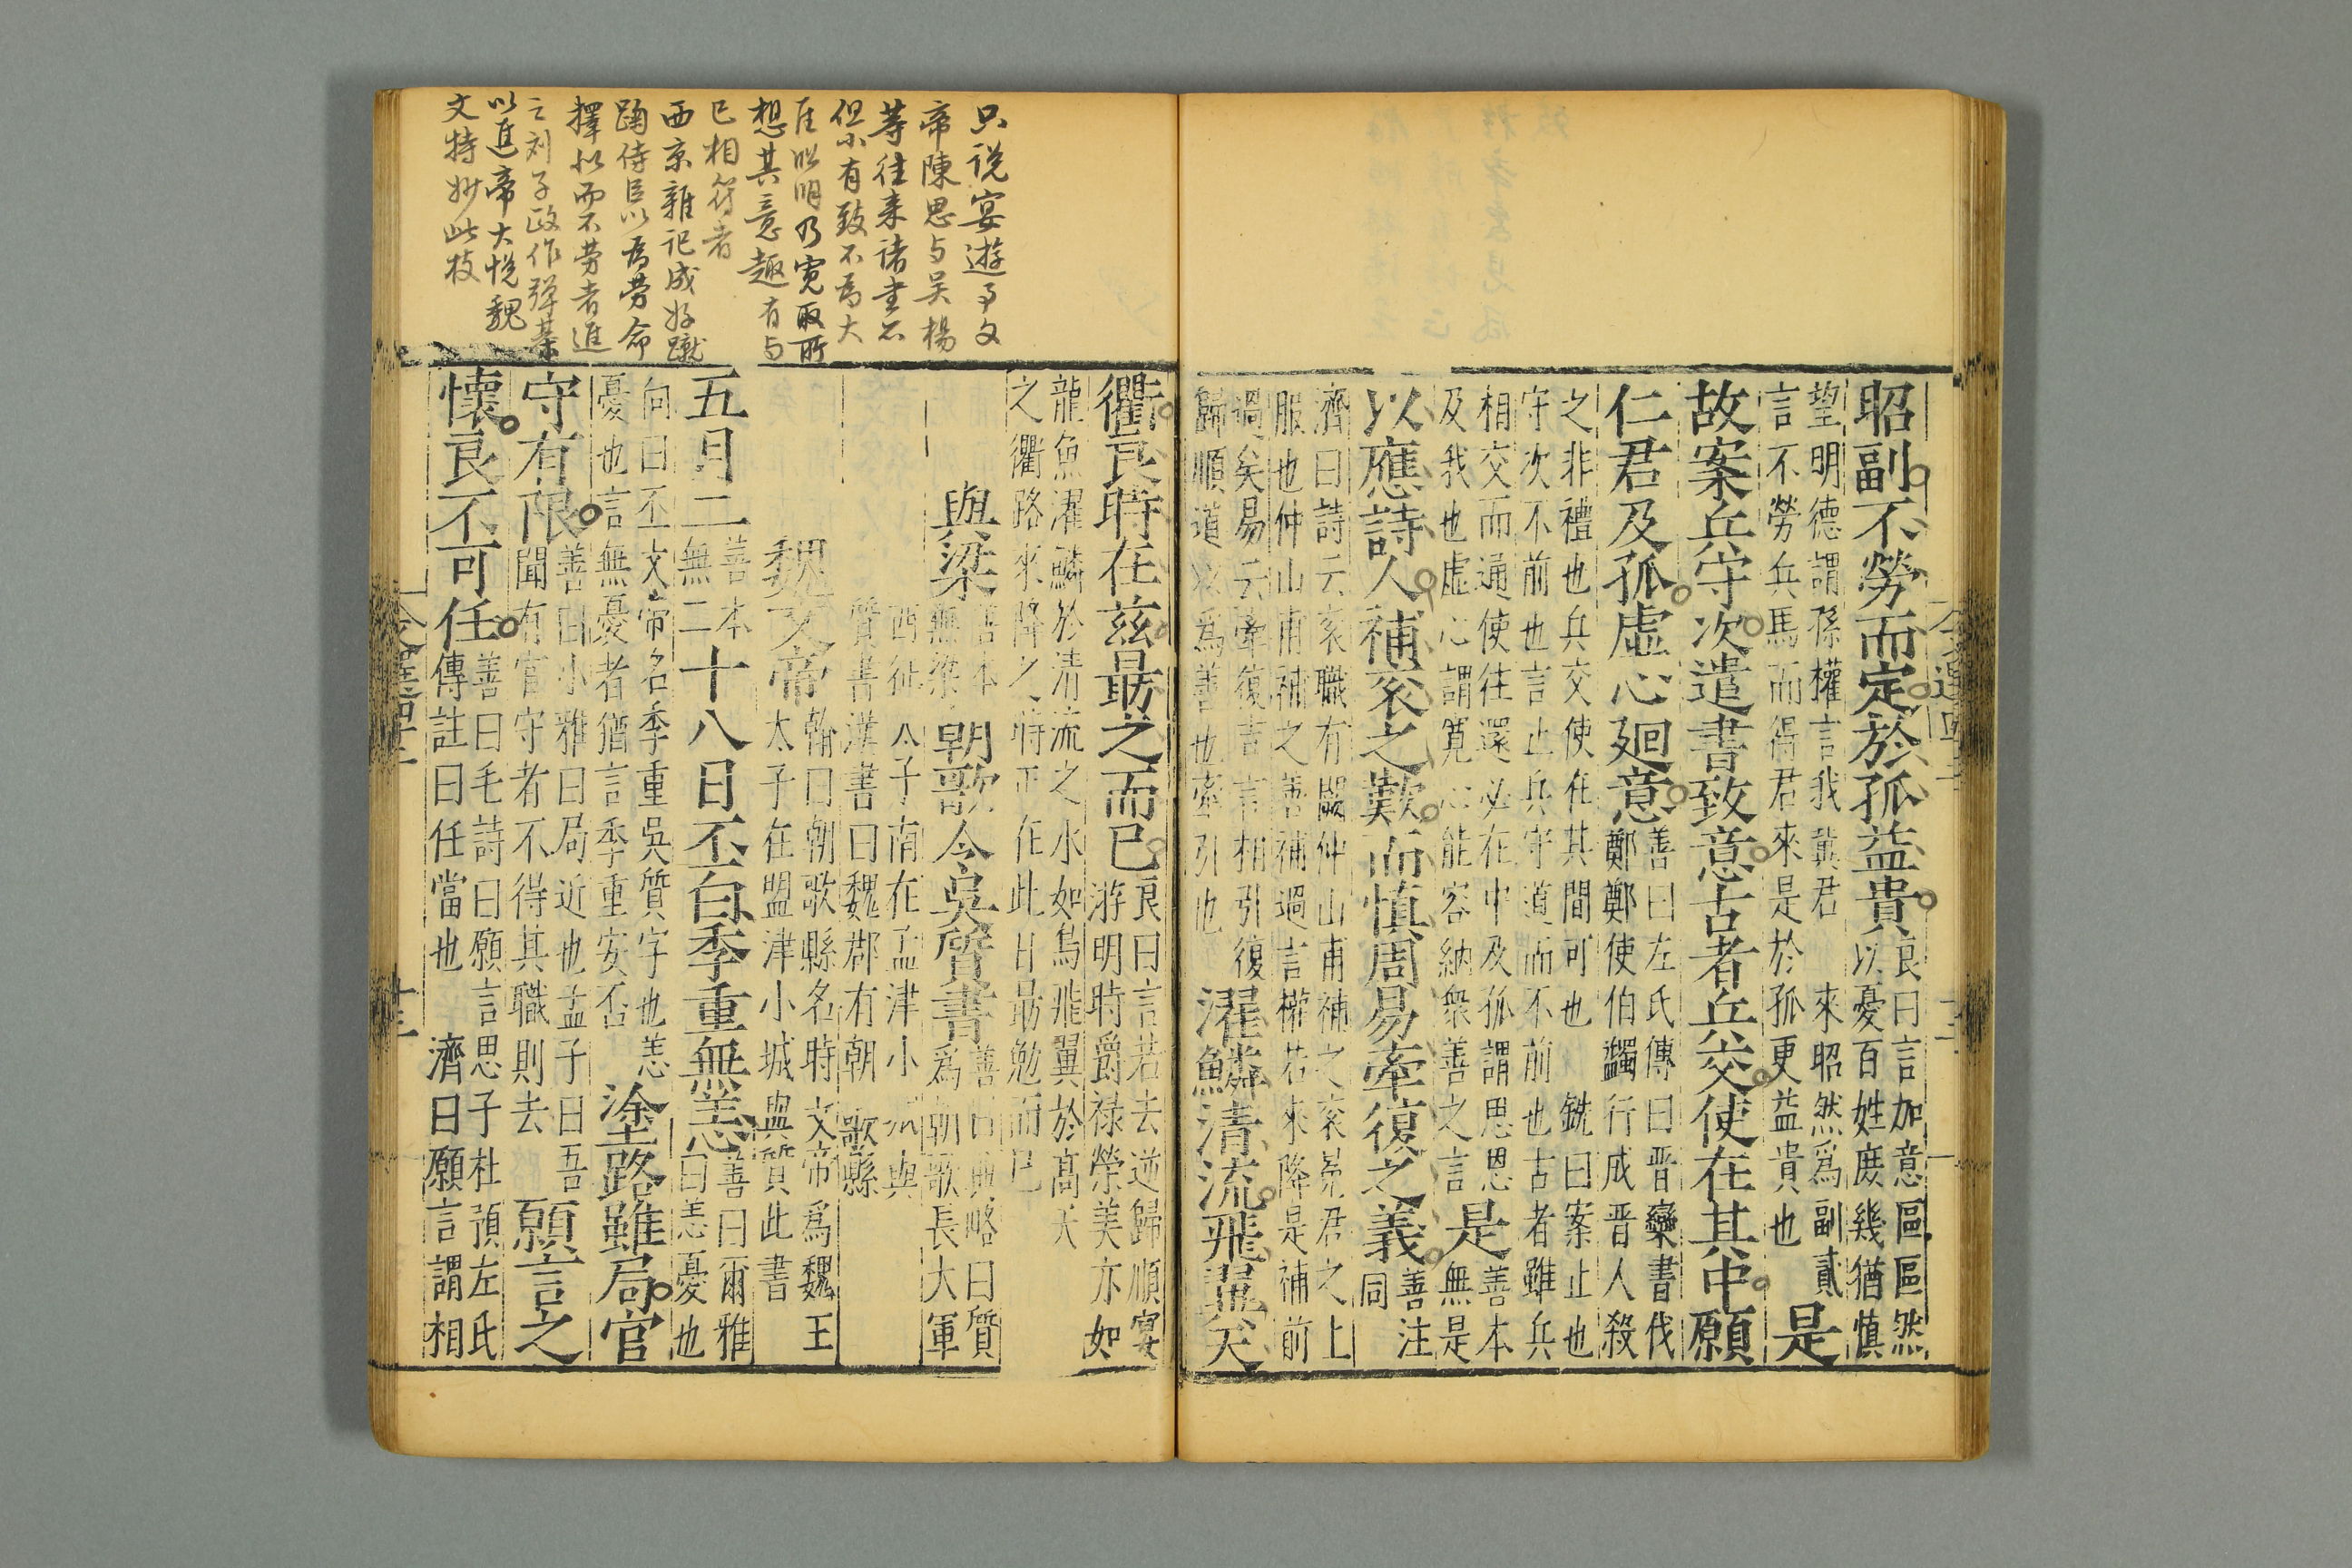 昭副不勞而定於孤益貴
良曰言加意區區然
以憂百姓庻幾猶慎
望明德謂孫權言我冀君來昭然爲副貳
言不勞兵馬而得君來是於孤更益貴也
是
故案兵守次遣書致意古者兵交使在其中願
仁君及孤虛心廻意
善曰左氏傳曰晋欒書伐
鄭鄭使伯蠲行成晋人殺
之非禮也兵交使在其間可也銑曰案止也
守次不前也言止兵守道而不前也古者雖兵
相交而通使往還必在中及孤謂思恩
及我也虛心謂寬心能容納衆善之言
善本
無是
是
以應詩人補衮之歎而慎周易牽復之義
善注
同
濟曰詩云衮職有闕仲山甫補之衮冕君之上
服也仲山甫補之善補過言權若來降是補前
過矣易云牽復吉言相引復
歸順道以爲善也牽引也
濯鱗清流飛翼天
衢良時在兹最之而已
良曰言若去逆歸順宴
游明時爵禄榮美亦如
龍魚濯鱗於清流之水如鳥飛翼於高天
之衢路來降之時正在此日最勉而已
與梁
善本
無梁
朝歌令吳質書
善曰典略曰質
爲朝歌長大軍
西征太子南在孟津小城與
質書漢書曰魏郡有朝歌縣
魏文帝
翰曰朝歌縣名時文帝爲魏王
太子在盟津小城與質此書
五月二
善本
無二
十八日丕白季重無恙
善曰爾雅
曰恙憂也
向曰丕文帝名季重吳質字也恙
憂也言無憂者猶言季重安否
塗路雖局官
守有限
善曰小雅曰局近也孟子曰吾
聞有官守者不得其職則去
願言之
懷良不可任
善曰毛詩曰願言思子杜預左氏
傳註曰任當也濟曰願言謂相
只说宴遊事文
帝陳思与吴楊
等往来诸書不
但小有致不為大
想其意趣有与
已相符者
西京雜记成好蹴
踘侍臣以為劳命
擇似而不劳者進
之刘子政作弹棊
以進帝大悦魏
文特妙此技